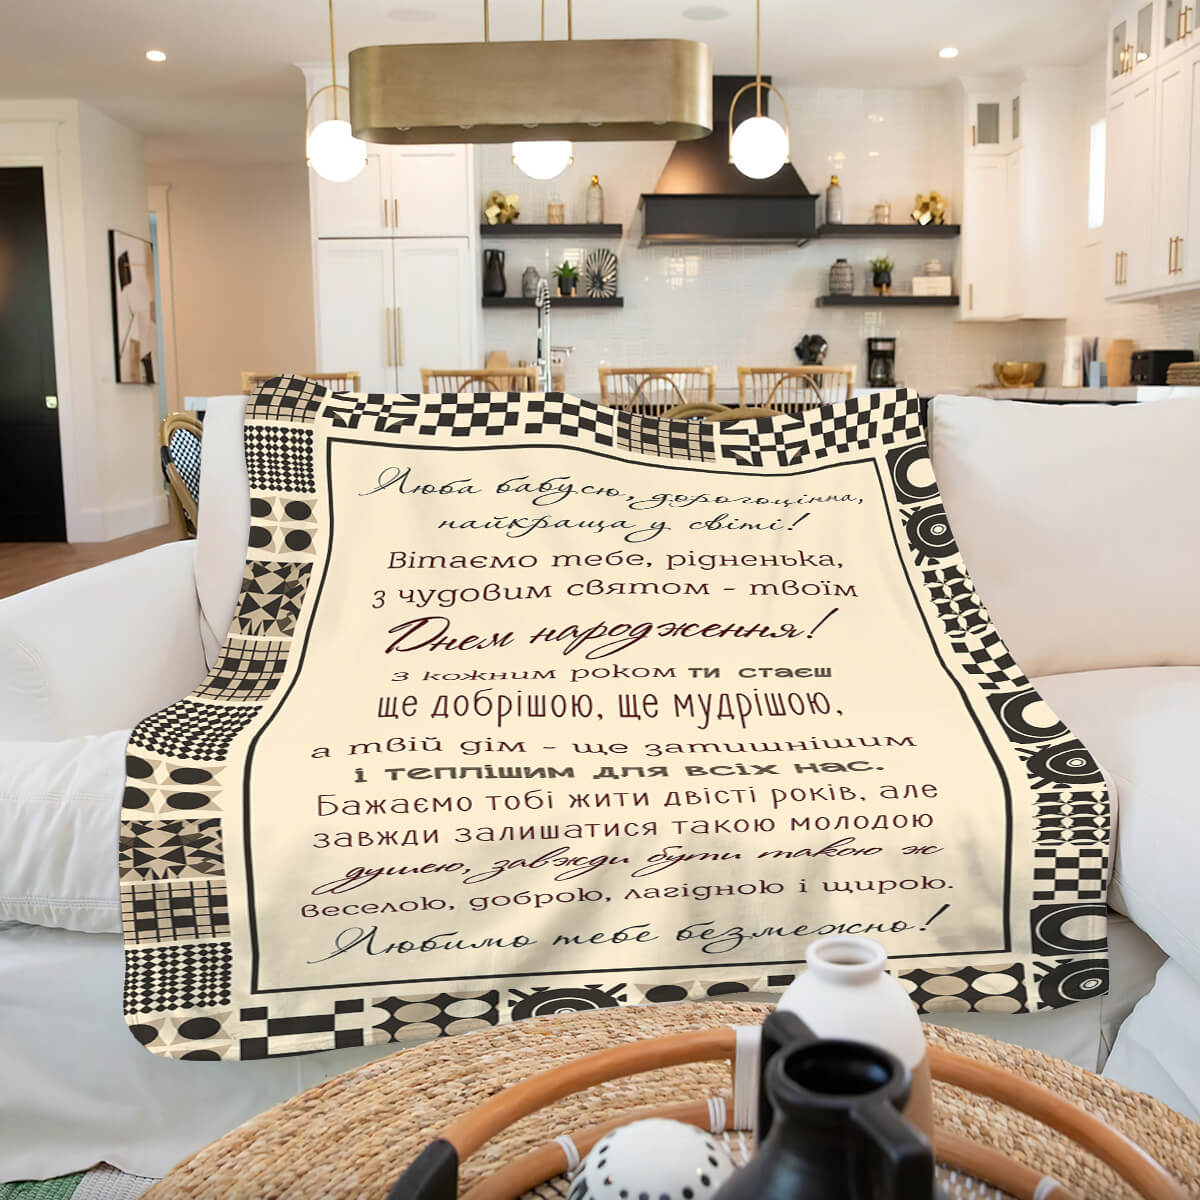 Люба бабусю, дорогоцінна,
найкраща у світі!
Вітаємо тебе, рідненька,
з чудовим святом - твоїм
Днем народження!
з кожним роком ти стаєш
ще добрішою, ще мудрішою,
а твій дім - ще затишнішим
і теплішим для всіх нас.
Бажаємо тобі жити двісті років, але
завжди залишатися такою молодою
душею, завжди бути такою ж
веселою, доброю, лагідною і щирою.
Любимо тебе безмежно!